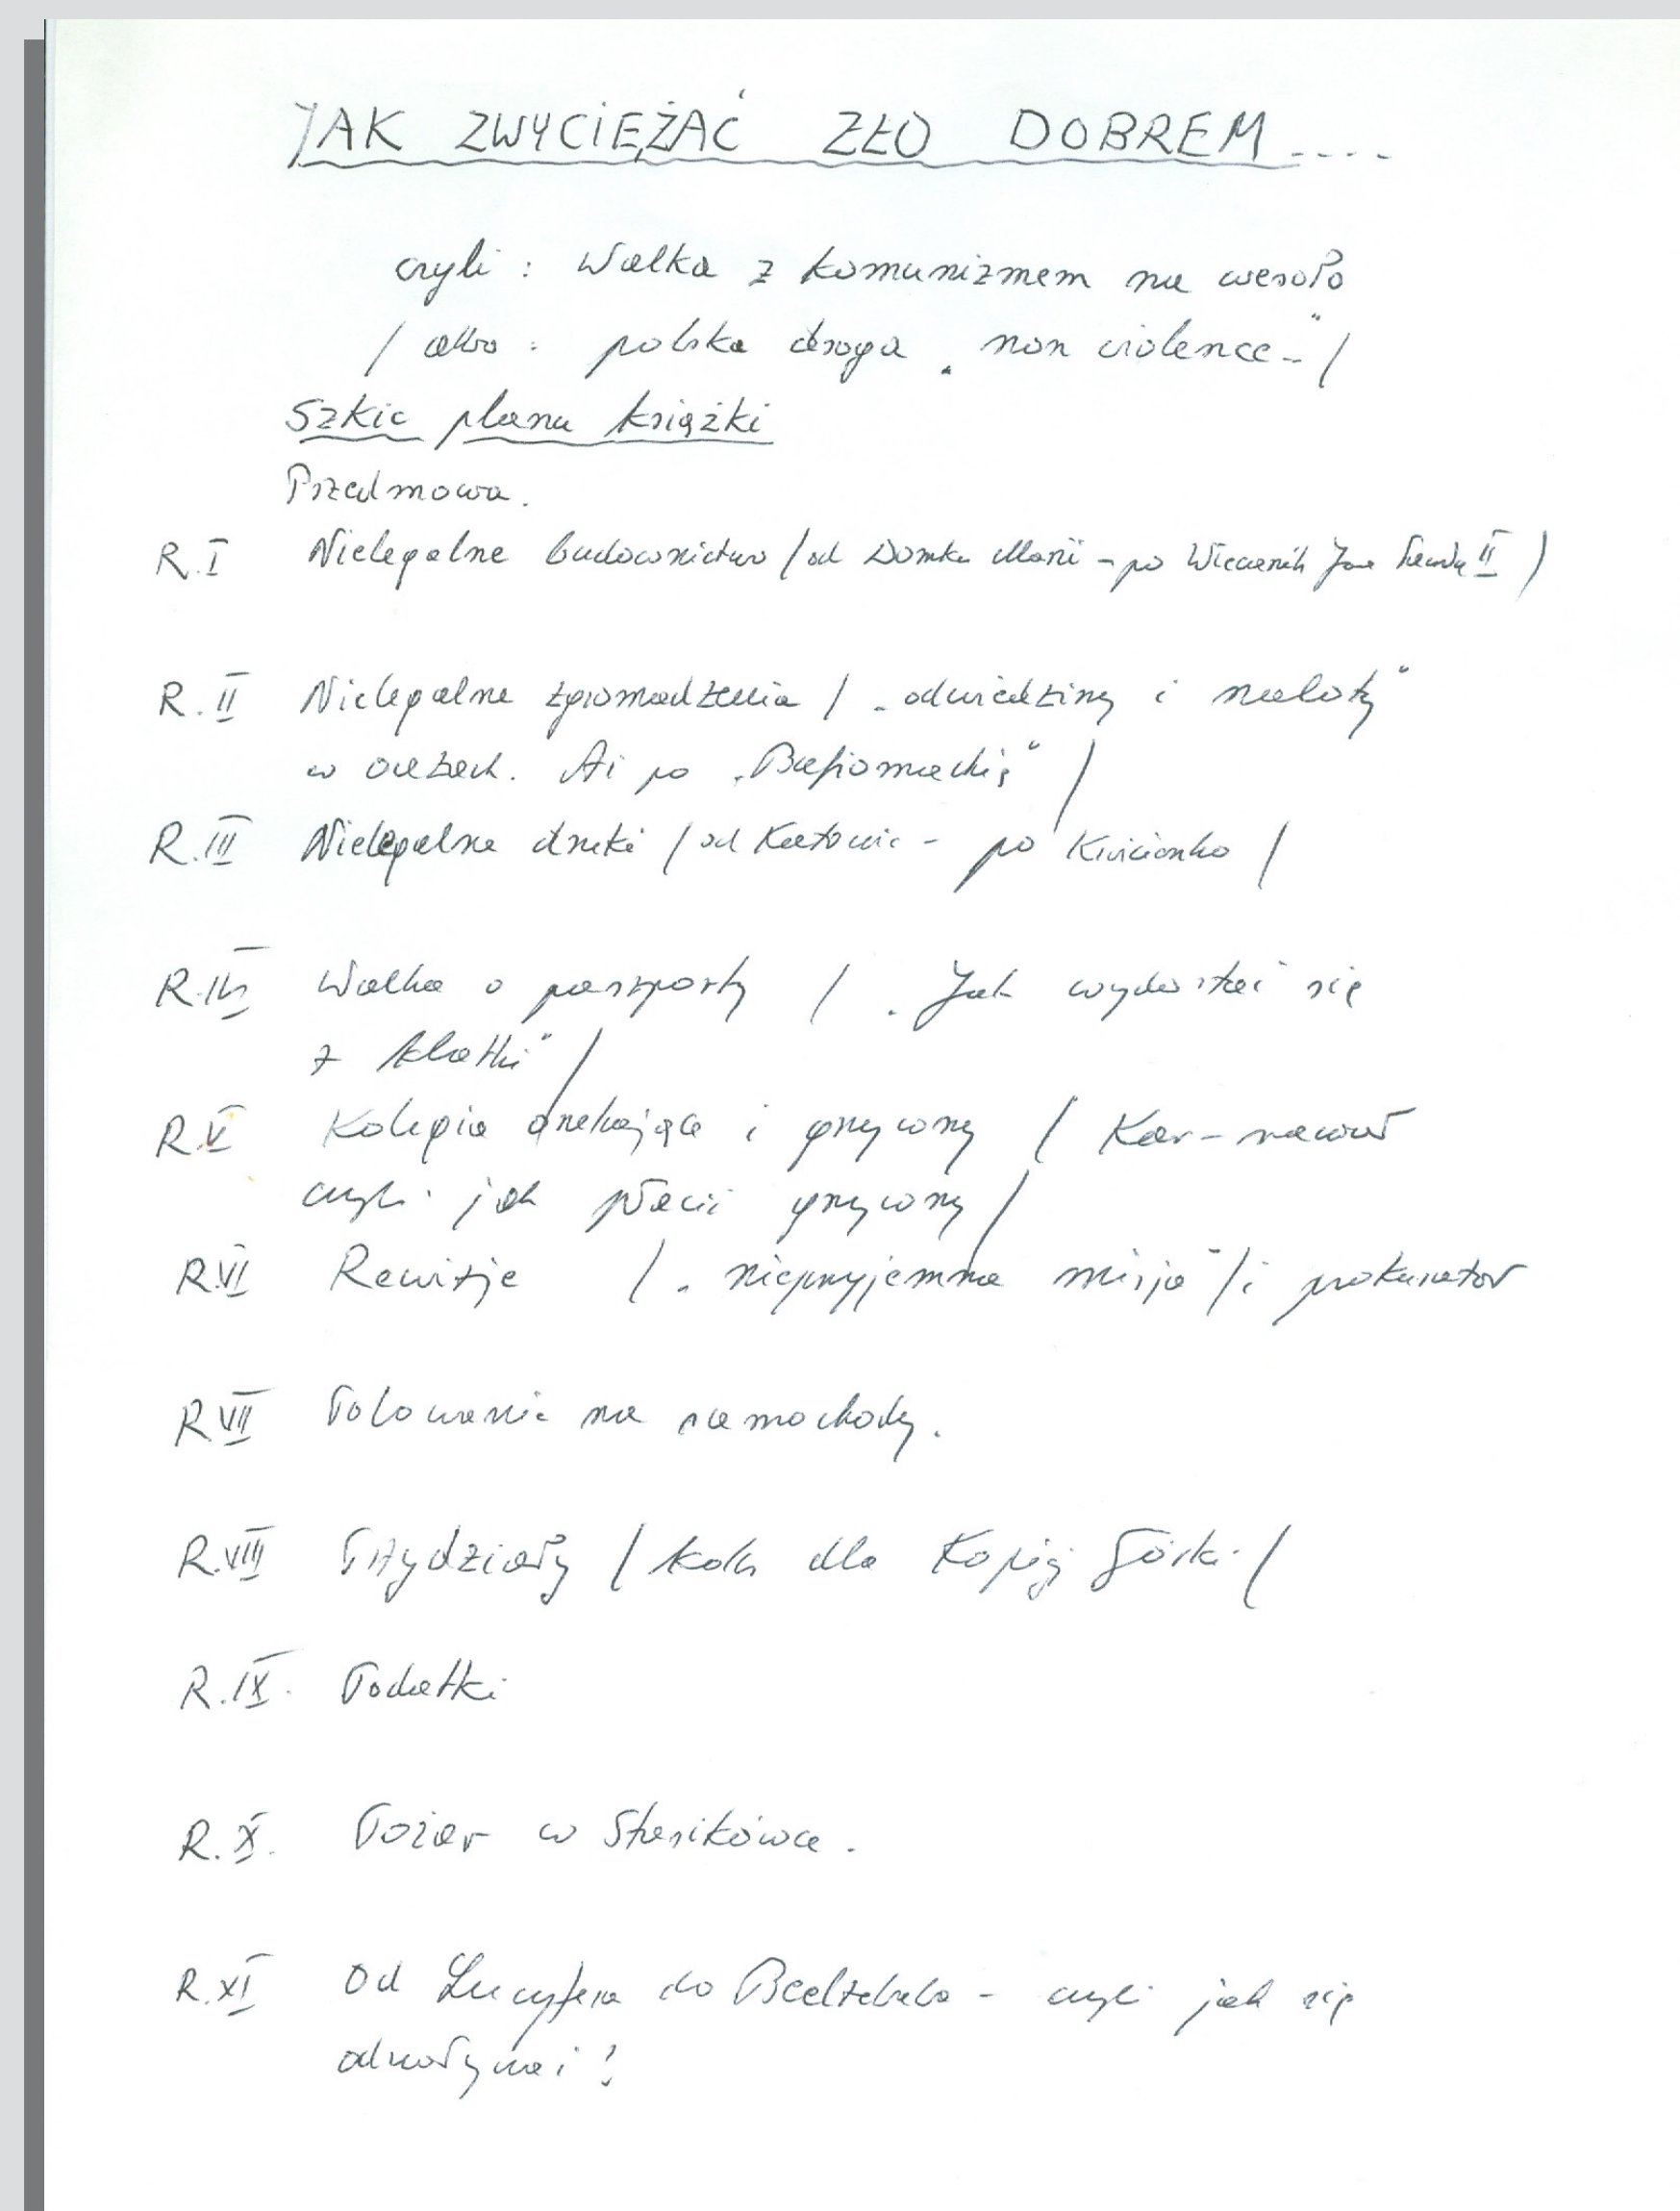 JAK ZWYCIĘŻAĆ ZŁO DOBREM....
czyli : Walka z komunizmem na wesoło
/ albo : polska droga „non violence" /
Szkic planu książki
Przedmowa.
R.I Nielegalne budownictwo / od Domku Marii - po Wieczernik Jana Pawła II /
R.II Nielegalne zgromadzenia / „odwiedziny i naloty"
w oazach. Aż po „Błyskawicę" /
R.III Nielegalne druki / od Katowic - po Krościenko /
R.IV Walka o paszporty / „Jak wydostać się
z klatki" /
R.V Kolegia orzekające i grzywny / Kar-nawał
czyli jak płacić grzywny /
R.VI Rewizje / „nieprzyjemna misja" / i prokurator
R.VII Polowanie na samochody.
R.VIII Przydziały / koks dla Kopiej Górki /
R.IX. Podatki
R.X. Pożar w Stasikówce.
R.XI Od Lucyfera do Beelzebuba - czyli jak się
odwoływać !